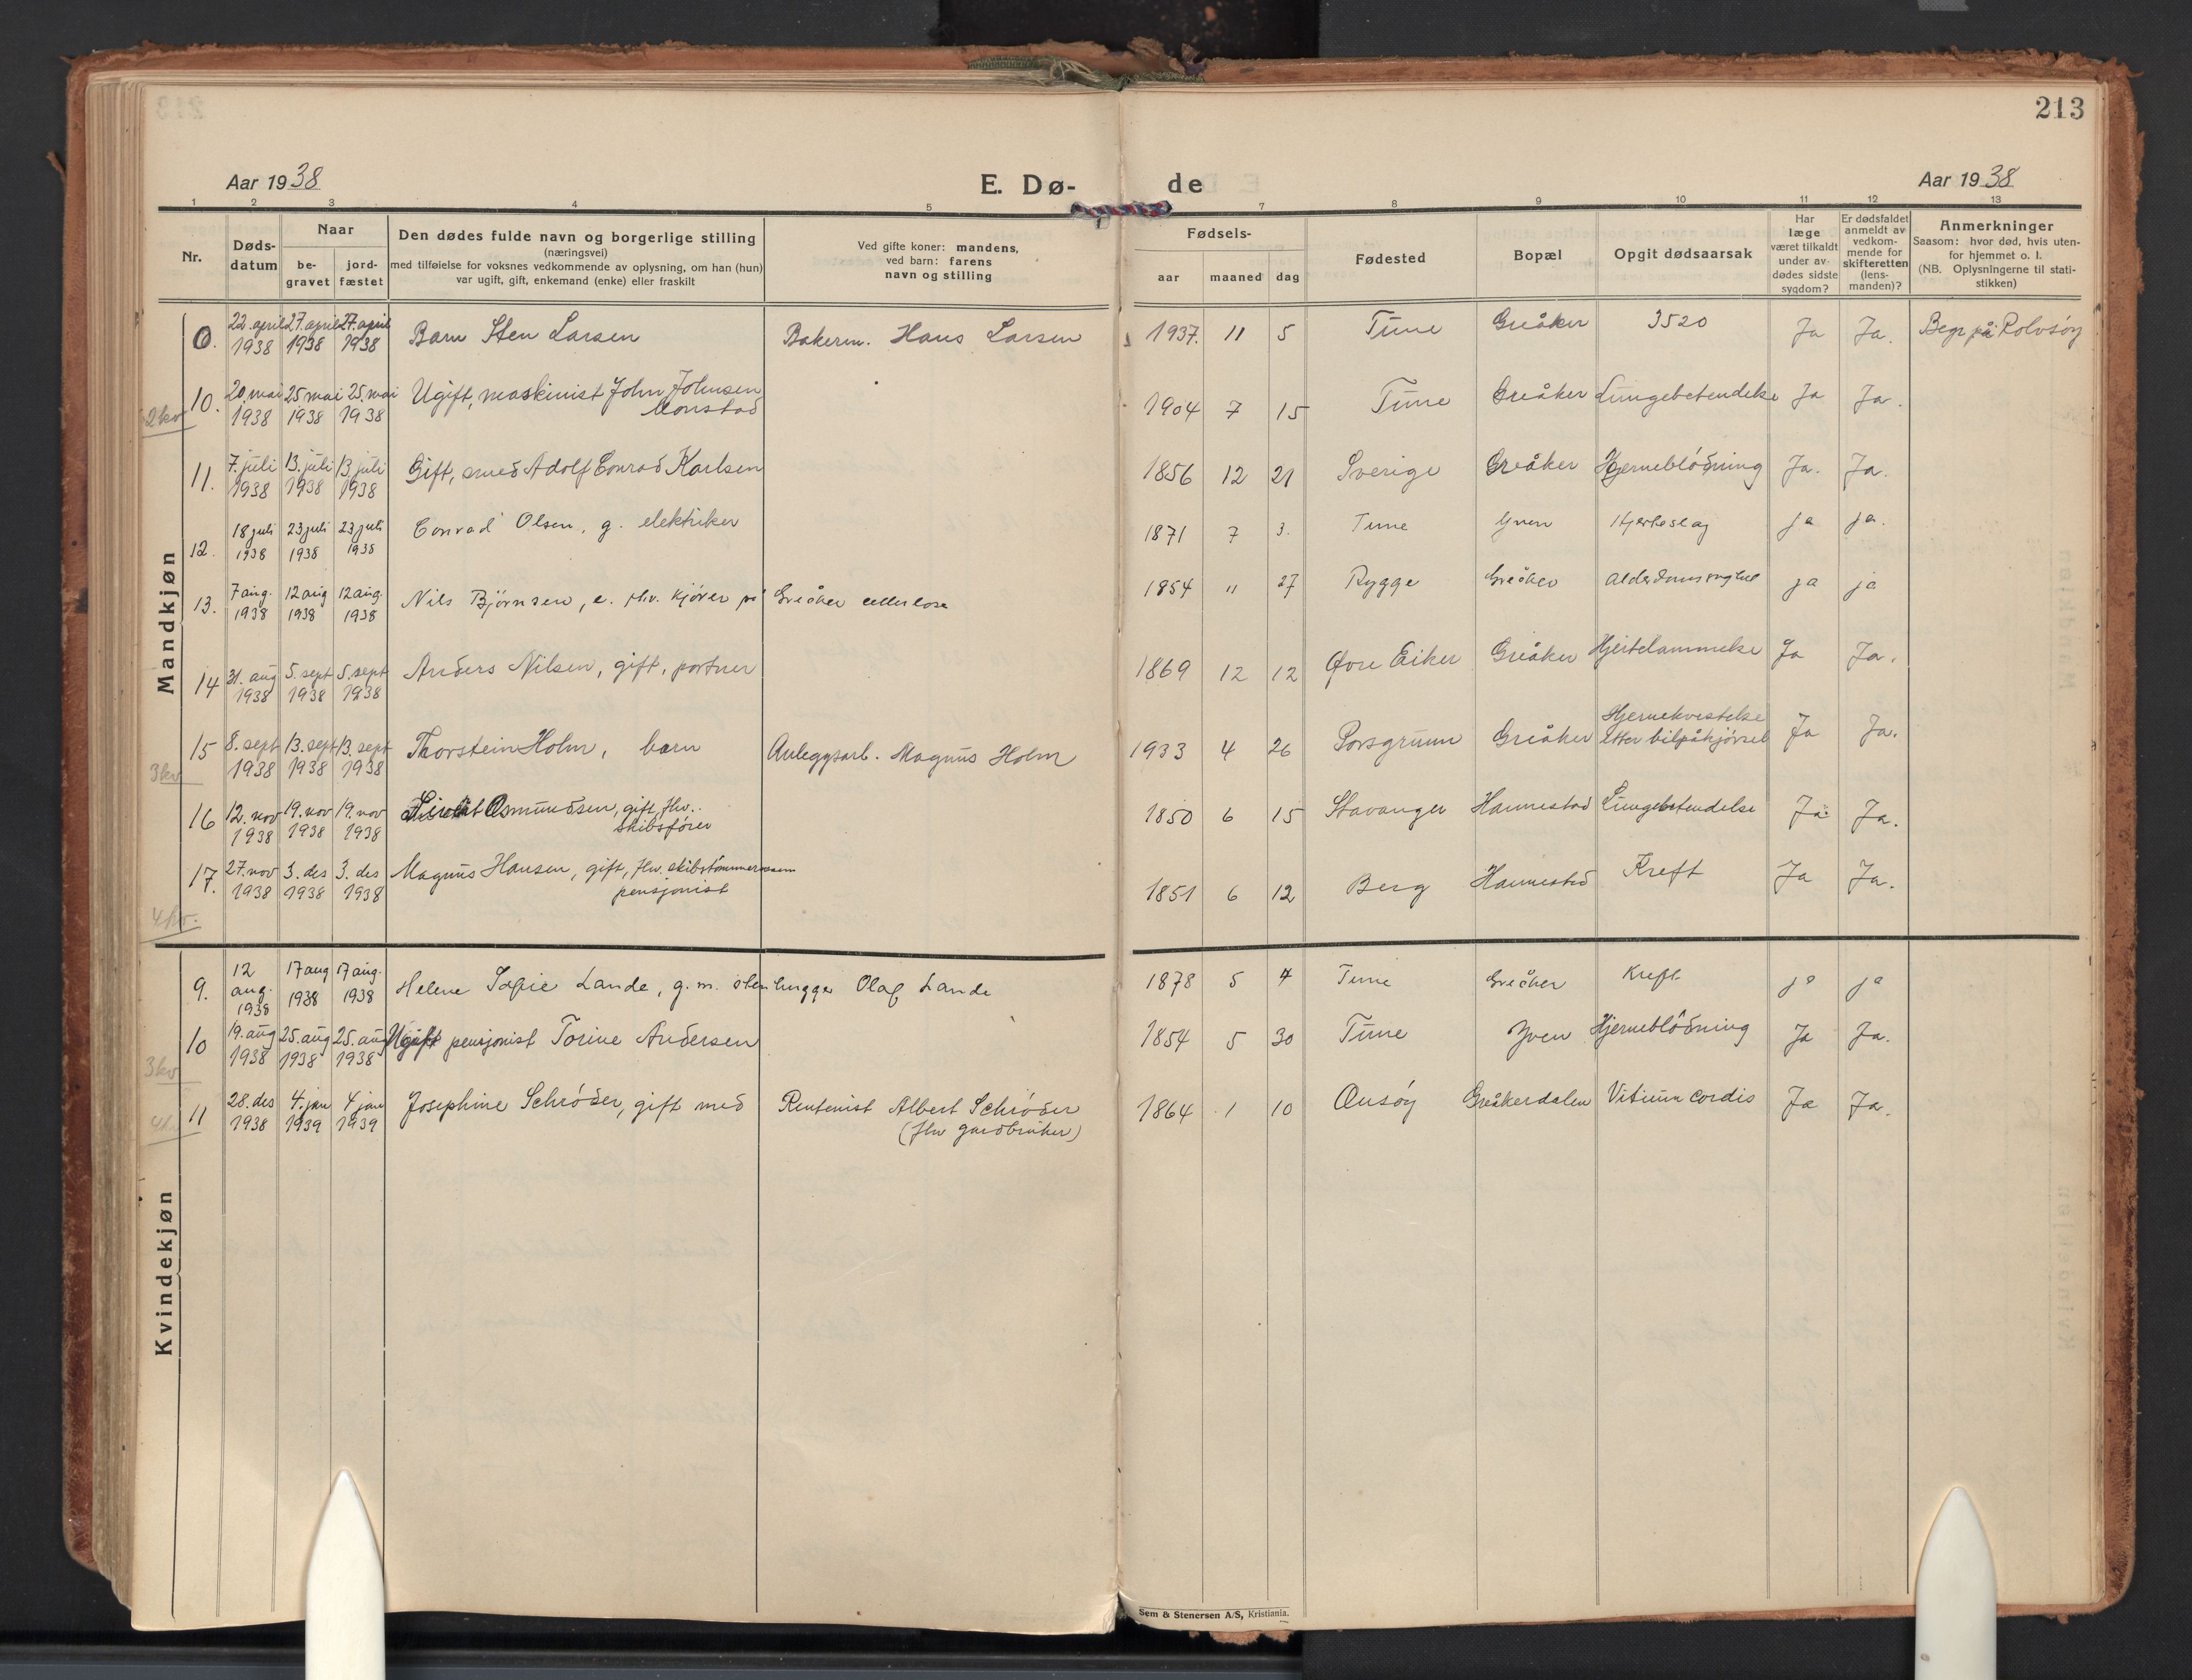 213
Aar 1938
E. Dø-
de
Aar 1938
1 2 3 4 5 7 8 9 10 11 12 13
Nr.
Døds-
datum
Naar
be-
gravet
jord-
fæstet
Den dødes fulde navn og borgerlige stilling
(næringsvei)
med tilføielse for voksnes vedkommende av oplysning, om han (hun)
var ugift, gift, enkemand (enke) eller fraskilt
Ved gifte koner: mandens,
ved barn: farens
navn og stilling
Fødsels-
aar maaned dag
Fødested
Bopæl
Opgit dødsaarsak
Har
læge
været tilkaldt
under av-
dødes sidste
sygdom?
Er dødsfaldet
anmeldt av
vedkom-
mende for
skifteretten
(lens-
manden)?
Anmerkninger
Saasom: hvor død, hvis uten-
for hjemmet o. l.
(NB. Oplysningerne til stati-
stikken)
Mandkjøn
22. april 27. april 27. april
1938 1938 1938
Barn Sten Larsen Bakerm. Hans Larsen 1937. 11 5 Tune Greåker 3520 Ja Ja. Begr på Rolvsøy
2 kv
10. 20. mai 25 mai 25. mai
1938 1938 1938
Ugift, maskinist John Johnsen
Monstad
1904 7 15 Tune Greåker Lungebetendelse Ja Ja.
11. 7. juli 13. juli 13 juli
1938 1938 1938
Gift, smed Adolf Conrad Karlsen 1856 12 21 Sverige Greåker Hjerneblødning Ja. Ja.
12. 18 juli 23 juli 23 juli
1938 1938 1938
Conrad Olsen, g. elektriker 1871 7 3. Tune Yven Hjerteslag ja ja.
13. 7 aug. 12 aug 12 aug.
1938 1938 1938
Nils Bjørnsen, e. fhv. kjører på Greåker cellulose 1854 11 27 Rygge Greåker ja ja
14 31. aug 5. sept 5. sept
1938 1938 1938
Anders Nilsen, gift, portner 1869 12 12 Øvre Eiker Greåker Hjertelammelse Ja Ja.
15 8. sept 13. sept 13. sept
1938 1938 1938
Thorstein Holm, barn Anleggsarb. Magnus Holm 1933 4 26 Porsgrunn Greåker Hjernekvestelse
etter bilpåkjørsel Ja Ja.
3 kv
16 12. nov 19. nov 19. nov
1938 1938 1938
Osmundsen, gift, fhv.
skibsfører
1850 6 15 Stavanger Hannestad Lungebetendelse Ja Ja.
17. 27. nov 3. des 3. des
1938 1938 1938
Magnus Hansen, gift, fhv. skibstømmermann
pensjonist
1851 6 12 Berg Hannestad Kreft Ja Ja.
4 kv.
Kvindekjøn
9. 12
aug.
1938
17 aug
1938
17 aug.
1938
Helene Sofie Lande, g.m. stenhugger Olaf Lande 1878 5 4 Tune Greåker Kreft ja ja
10 19. aug 25. aug 25. aug
1938 1938 1938
Ugift pensjonist Torine Andersen 1854 5 30 Tune Yven Hjerneblødning Ja Ja.
3 kv
11 28. des 4. jan 4 jan
1938 1939 1939
Josephine Schrøder, gift med Rentenist Albert Schrøder
(fhv gardbruker)
1864 1 10 Onsøy Greåkerdalen Vitium cordis Ja Ja.
Sem & Stenersen A/S, Kristiania.